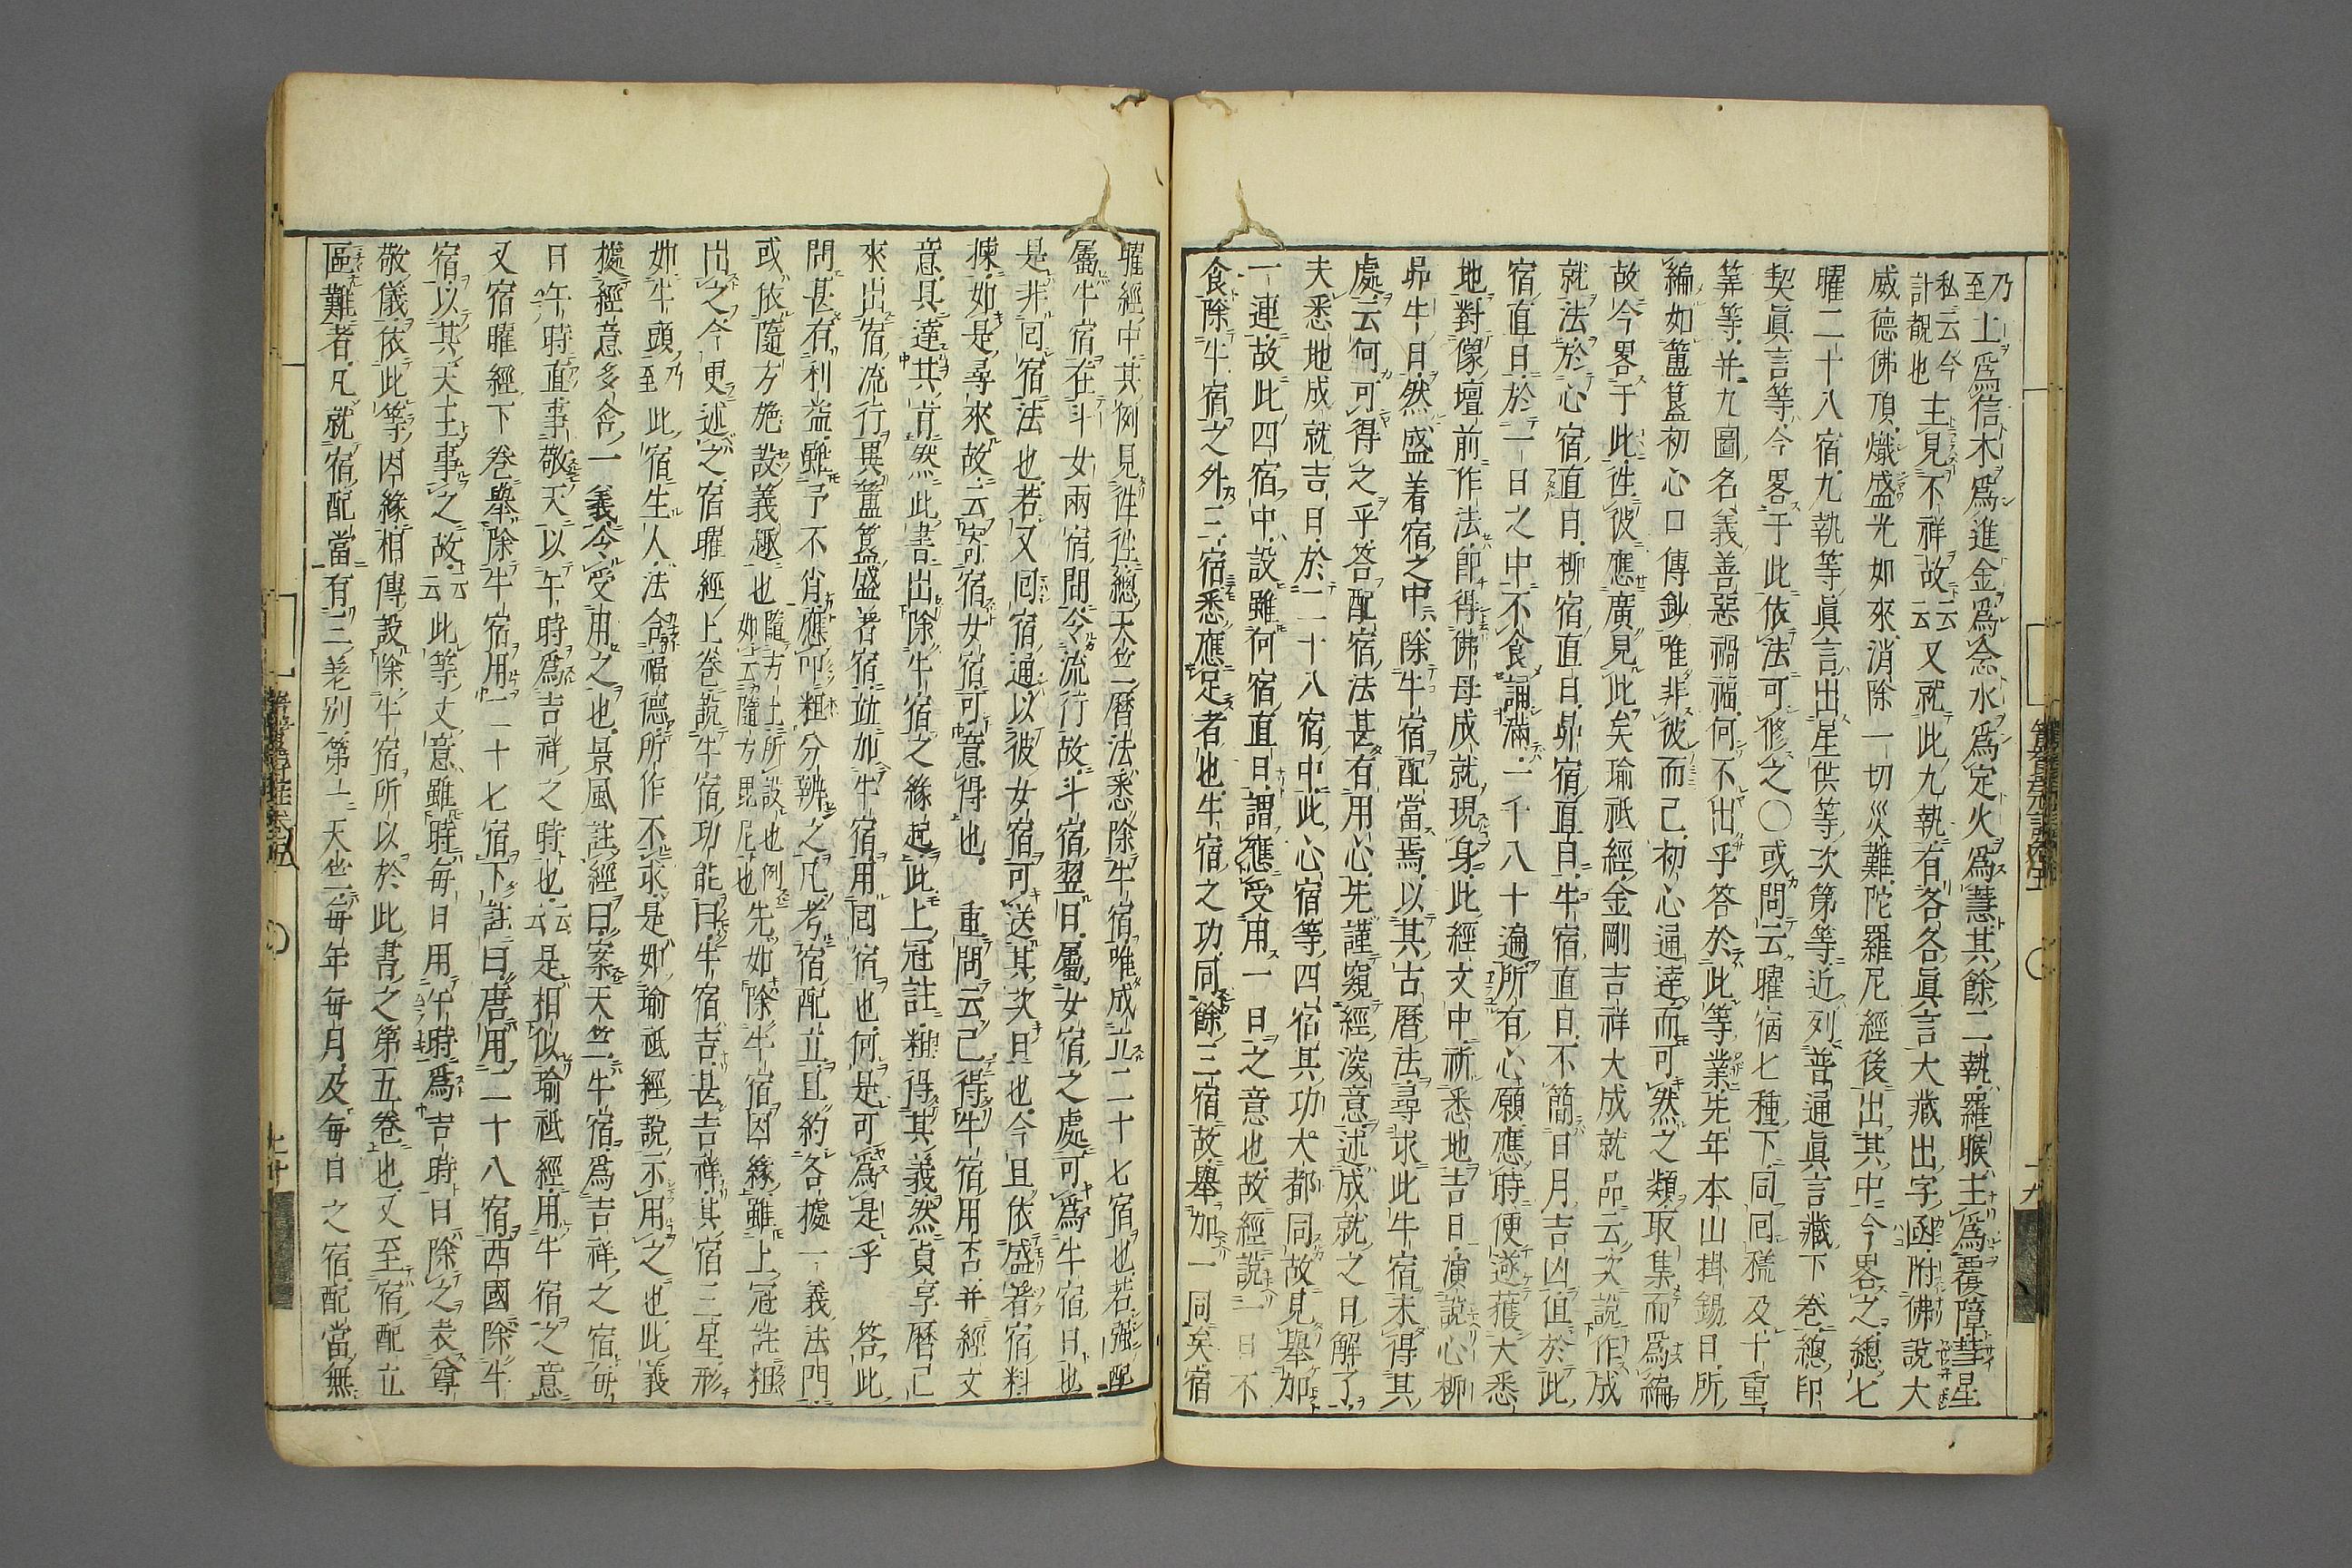 乃至土爲信木爲進金爲念水爲定火爲慧其餘二執羅睺主爲覆障彗星
私云今計覩也主見不祥故云云又就此九執有各各眞言大藏出字函附佛說大
威德佛頂熾盛光如來消除一切災難陀羅尼經後出其中今畧之總七
曜二十八宿九執等眞言出星供等次第等近列普通眞言藏下卷總印
契眞言等今畧于此依法可修之〇或問云曜宿七種下同回㨾及十重
等等并九圖名義善惡禍福何不出乎答於此等業先年本山掛錫日所
編如簠簋初心口傳鈔唯非彼而已初心通達而可然之類取集而爲編
故今畧于此徃彼應廣見此矣瑜祗經金剛吉祥大成就品云次說作成
就法於心宿直日柳宿直日昴宿直日牛宿直日不簡日月吉凶値於此
宿直日於一日之中不食誦滿一千八十遍所有心願應時便遂獲大悉
地對像壇前作法卽得佛母成就現身此經文中祈悉地吉日演說心柳
昴牛日然盛着宿之中除牛宿配當焉以其古曆法尋求此牛宿未得其
處云何可得之乎答配宿法甚有用心先謹窺經深意述成就之日解了
夫悉地成就吉日於二十八宿中此心宿等四宿其功大都同故見舉加
一連故此四宿中設雖何宿直日謂應受用一日之意也故經說一日不
食除牛宿之外三宿悉應足者也牛宿之功同餘三宿故舉加一同矣宿
曜經中其例見徃徃總天竺曆法悉除牛宿唯成立二十七宿也若强配
屬牛宿在斗女兩宿間令流行故斗宿翌日屬女宿之處可爲牛宿日也
是非回宿法也若又回宿通以彼女宿可送其次日也今且依盛著宿料
揀如是尋來故云寄宿女宿可意得也 重問云已得牛宿用否并經文
意具達其肯然此書出除牛宿之緣起此上冠註粗得其義然貞享曆已
來出宿流行異簠簋盛著宿竝加牛宿用回宿也何是可爲是乎 答此
問甚有利益雖予不肖應叩粗分辨之凡考宿配立且約各據一義法門
或依隨方施設義趣也隨方土所說也例如云隨方毘尼也先如除牛宿因緣雖上冠註粗
出之今更述之宿曜經上卷說牛宿功能曰牛宿吉甚吉祥其宿三星形
如牛頭乃至此宿生人法合福德所作不求是如瑜祗經說示用之也此義
據經意多含一義今受用之也景風註經曰案天竺牛宿爲吉祥之宿每
日午時直事敬天以午時爲吉祥之時也云云是相似瑜祗經用牛宿之意
又宿曜經下卷舉除牛宿用二十七宿下註曰唐用二十八宿西國除牛
宿以其天主事之故云云此等丈意雖時每日用午時爲吉時日除之表尊
敬儀依此等因緣相傳設除牛宿所以於此書之第五卷也又至宿配立
區難者凡就宿配當有三差別第一天竺每年每月及每日之宿配當無